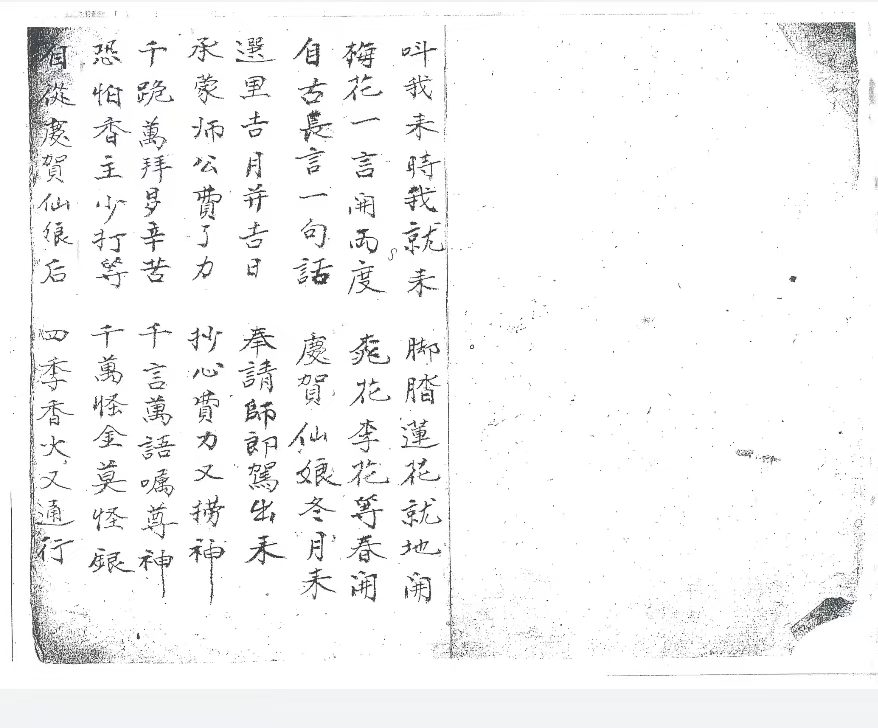 呌我来時我就来 脚踏蓮花就地開
梅花一言開両度 桃花李花等春開
自古長言一句話 慶賀仙娘冬月来
選里吉月并吉日 奉請師郎駕出来
承蒙师公費了力 抄心費力又撈神
千跪萬拜多辛苦 千言萬語嘱尊神
恐怕香主少打等 千萬怪金莫怪銀
自從慶賀仙娘后 四季香火又通行